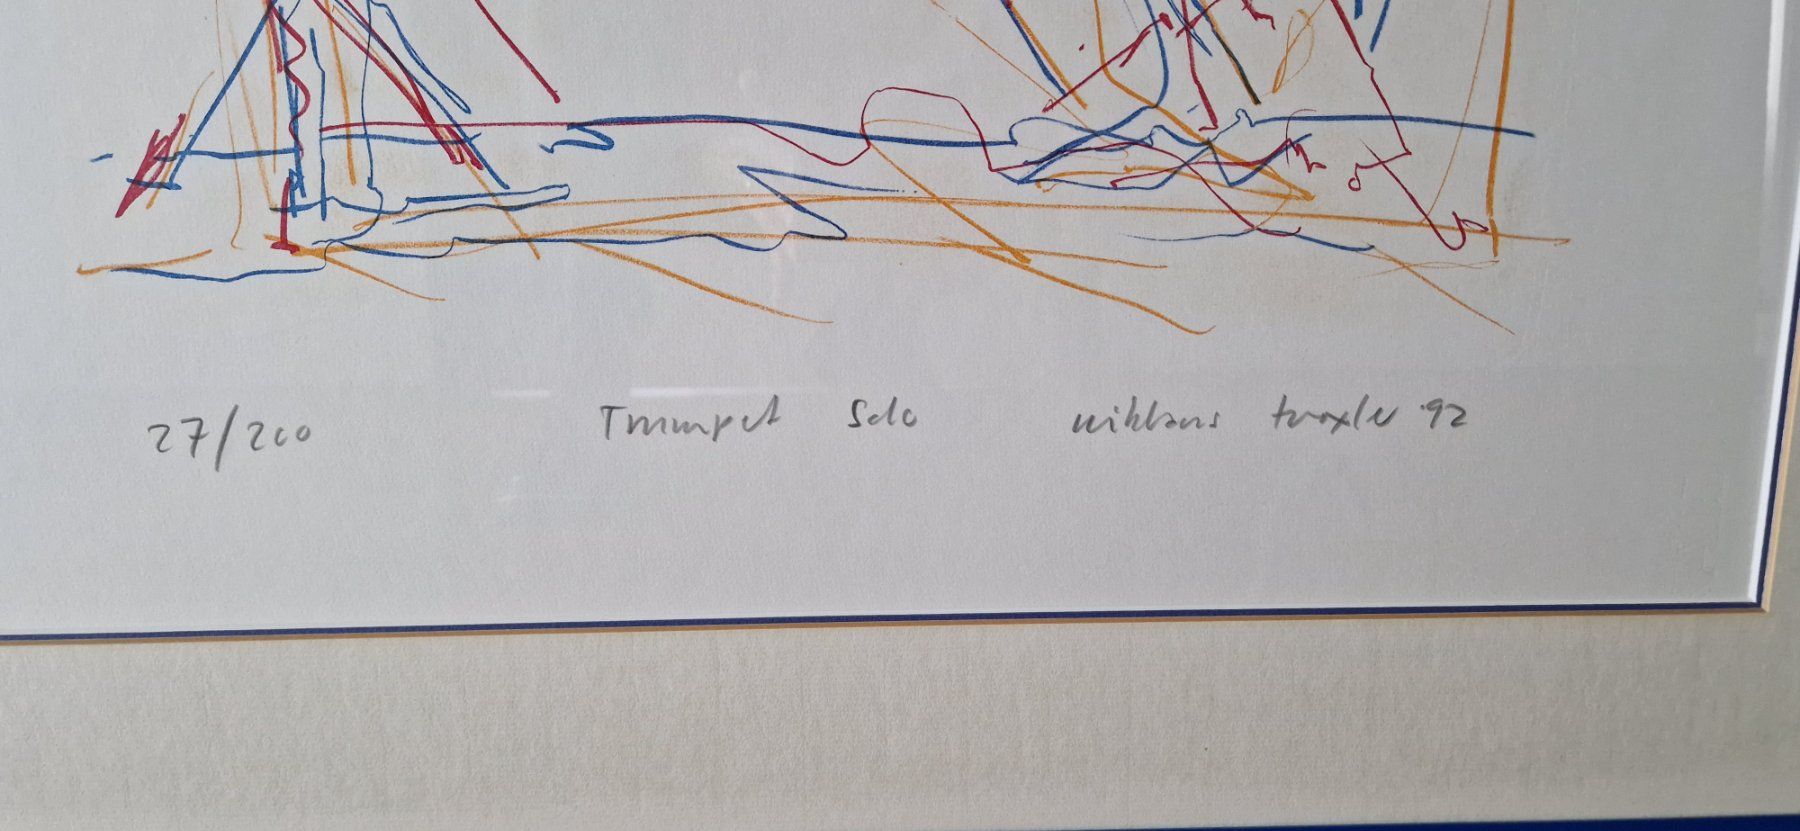 27/200 Trumpet Solo niklaus troxler '92